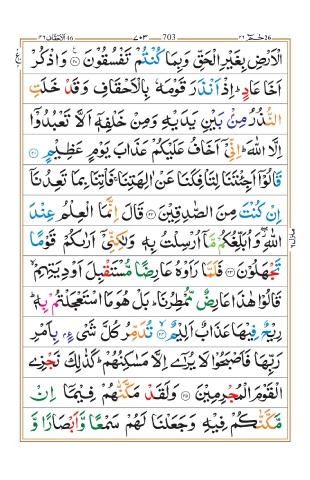 الاحقاف ٤٦ ٧٠٣ 703 حٰمٓ ٢٦
الْاَرْضِ بِغَيْرِ الْحَقِّ وَبِمَا كُنْتُمْ تَفْسُقُوْنَ ﴿٢٠﴾ وَاذْكُرْ
اَخَا عَادٍؕ اِذْ اَنْذَرَ قَوْمَهٗ بِالْاَحْقَافِ وَقَدْ خَلَتِ
النُّذُرُ مِنْۢ بَيْنِ يَدَيْهِ وَمِنْ خَلْفِهٖۤ اَلَّا تَعْبُدُوْۤا
اِلَّا اللّٰهَؕ اِنِّىْۤ اَخَافُ عَلَيْكُمْ عَذَابَ يَوْمٍ عَظِيْمٍ ﴿٢١﴾
قَالُوْۤا اَجِئْتَنَا لِتَاْفِكَنَا عَنْ اٰلِهَتِنَاۚ فَاْتِنَا بِمَا تَعِدُنَاۤ
اِنْ كُنْتَ مِنَ الصّٰدِقِيْنَ ﴿٢٢﴾ قَالَ اِنَّمَا الْعِلْمُ عِنْدَ
اللّٰهِ ۖ وَاُبَلِّغُكُمْ مَّاۤ اُرْسِلْتُ بِهٖ وَلٰكِنِّىْۤ اَرٰٮكُمْ قَوْمًا
تَجْهَلُوْنَ ﴿٢٣﴾ فَلَمَّا رَاَوْهُ عَارِضًا مُّسْتَقْبِلَ اَوْدِيَتِهِمْۙ
قَالُوْا هٰذَا عَارِضٌ مُّمْطِرُنَاؕ بَلْ هُوَ مَا اسْتَعْجَلْتُمْ بِهٖؕ
رِيْحٌ فِيْهَا عَذَابٌ اَلِيْمٌۙ ﴿٢٤﴾ تُدَمِّرُ كُلَّ شَىْءٍۢ بِاَمْرِ
رَبِّهَا فَاَصْبَحُوْا لَا يُرٰٓى اِلَّا مَسٰكِنُهُمْؕ كَذٰلِكَ نَجْزِى
الْقَوْمَ الْمُجْرِمِيْنَ ﴿٢٥﴾ وَلَقَدْ مَكَّنّٰهُمْ فِيْمَاۤ اِنْ
مَّكَّنّٰكُمْ فِيْهِ وَجَعَلْنَا لَهُمْ سَمْعًا وَّاَبْصَارًا وَّ